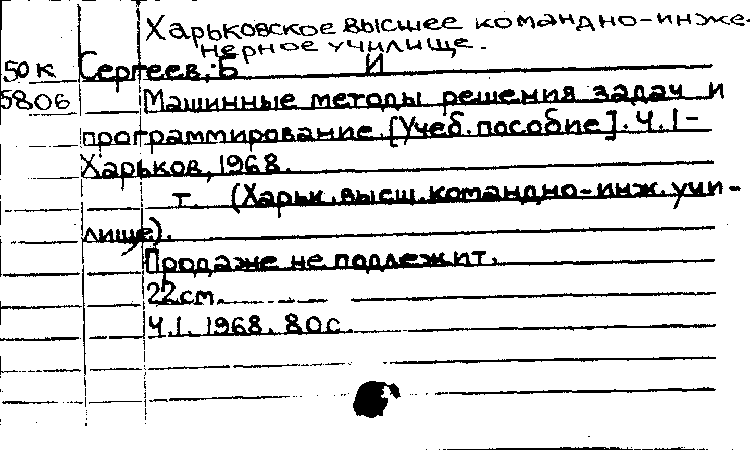 Харьковское высшее командно-инже-
нерное училище.
50к Сергеев, Б И
5806 Машинные методы решения задач и
программирование. [Учеб. пособие]. Ч. 1-
Харьков, 1968.
т. (Харьк. высш. командно-инж. учи-
лище).
Продаже не подлежит.
22 см.
Ч. 1. 1968. 80 с.